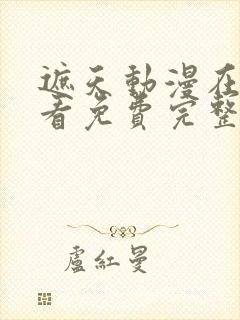 遮天動漫在
看免費完整
盧紅曼